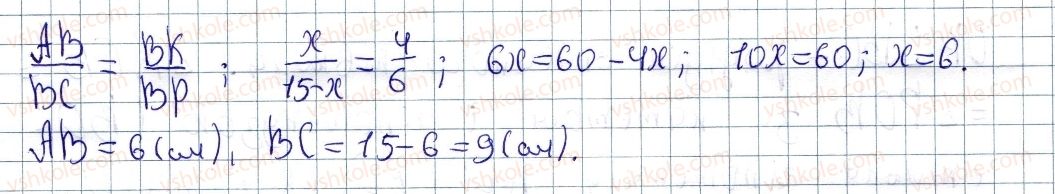 AB/BC = BK/BP; x/(15-x) = 4/6; 6x=60-4x; 10x=60; x=6.
AB = 6(см), BC = 15-6=9(см).